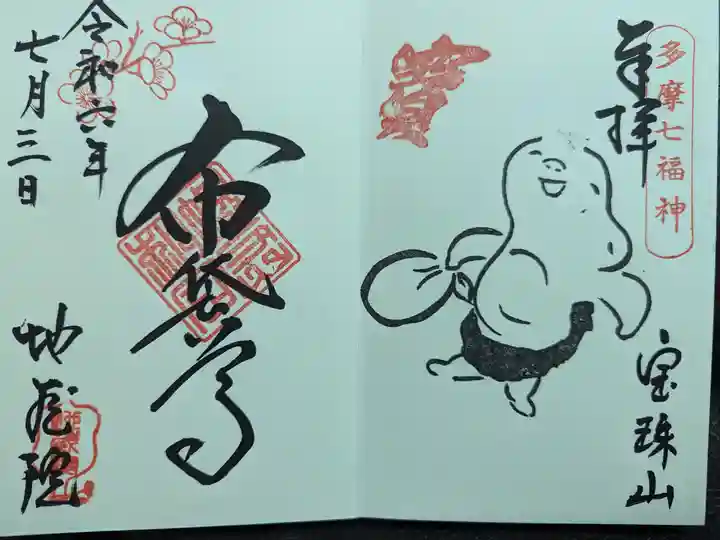 多摩七福神
奉拝
宝珠山
布袋尊
令和六年
七月三日
地蔵院